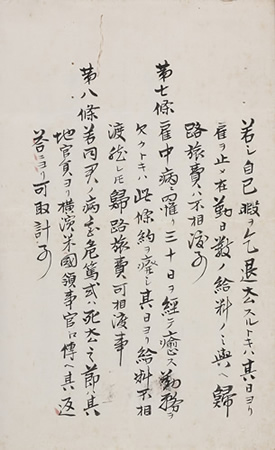 若シ自己暇ヲ乞退去スルトキハ其日ヨリ
雇ヲ止メ在勤日数ノ給料ノミ與ヘ歸
路旅費ハ不相渡事
第七條 雇中病ニ罹リ三十日ヲ經テ癒ス勤務ヲ
欠クトキハ此條約ヲ廃シ其日ヨリ給料不相
渡然シ𪜈歸路旅費可相渡事
第八條 若同人病危篤或ハ死去之節ハ其
地官員ヨリ横濱米國領事官ニ傳ヘ其返
答ニヨリ可取計事